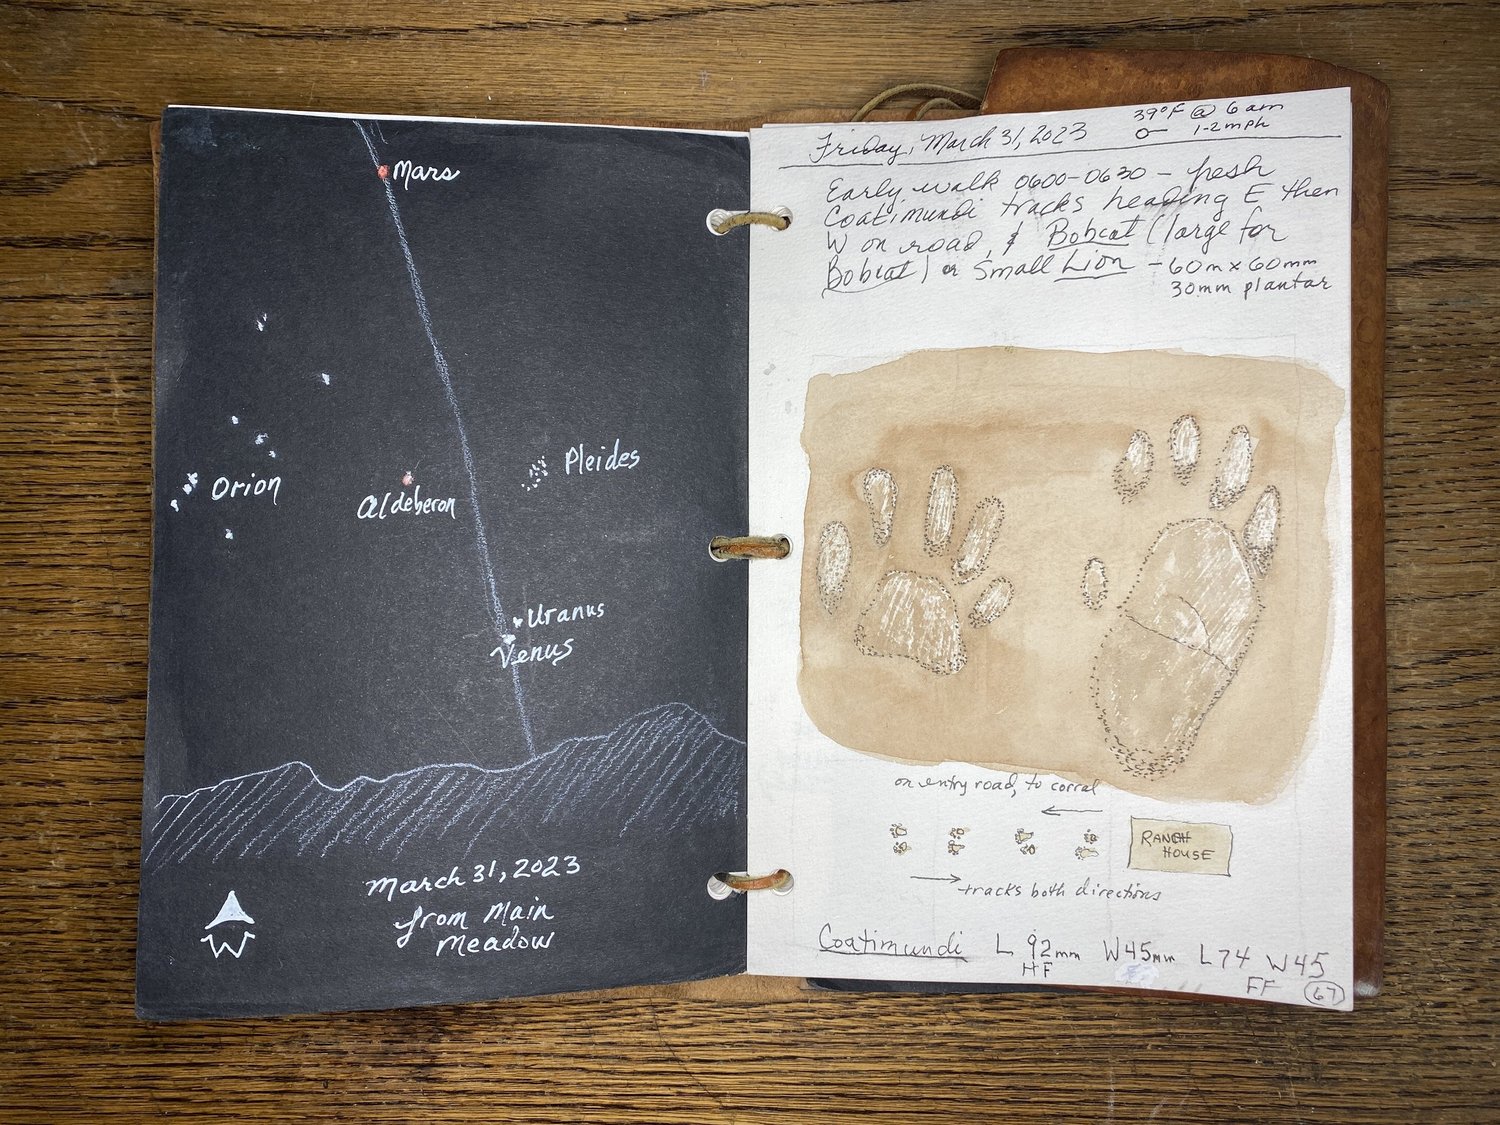 Mars
Orion
Aldeberon
Pleides
Uranus
Venus
March 31, 2023
from Main
Meadow
W
Friday, March 31, 2023
39°F @ 6 am
1-2 mph
Early walk 0600-0630 - fresh
Coatimundi tracks heading E then
W on road, & Bobcat (large for
Bobcat) or small Lion - 60m x 60mm
30mm plantar
on entry road, to corral
RANCH
HOUSE
tracks both directions
Coatimundi L 92mm W45mm L74 W45
HF FF
67